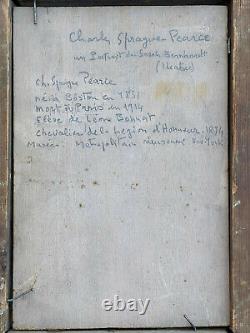 Charles Sprague-Pearce
un Portrait de Sarah Bernhardt
(theatre)
Ch. Sprague Pearce
né à Boston en 1851
mort à Paris en 1914
élève de Léon Bonnat
chevalier de la Légion d'Honneur. 1894
Musée. Metropolitain New-York
ebay